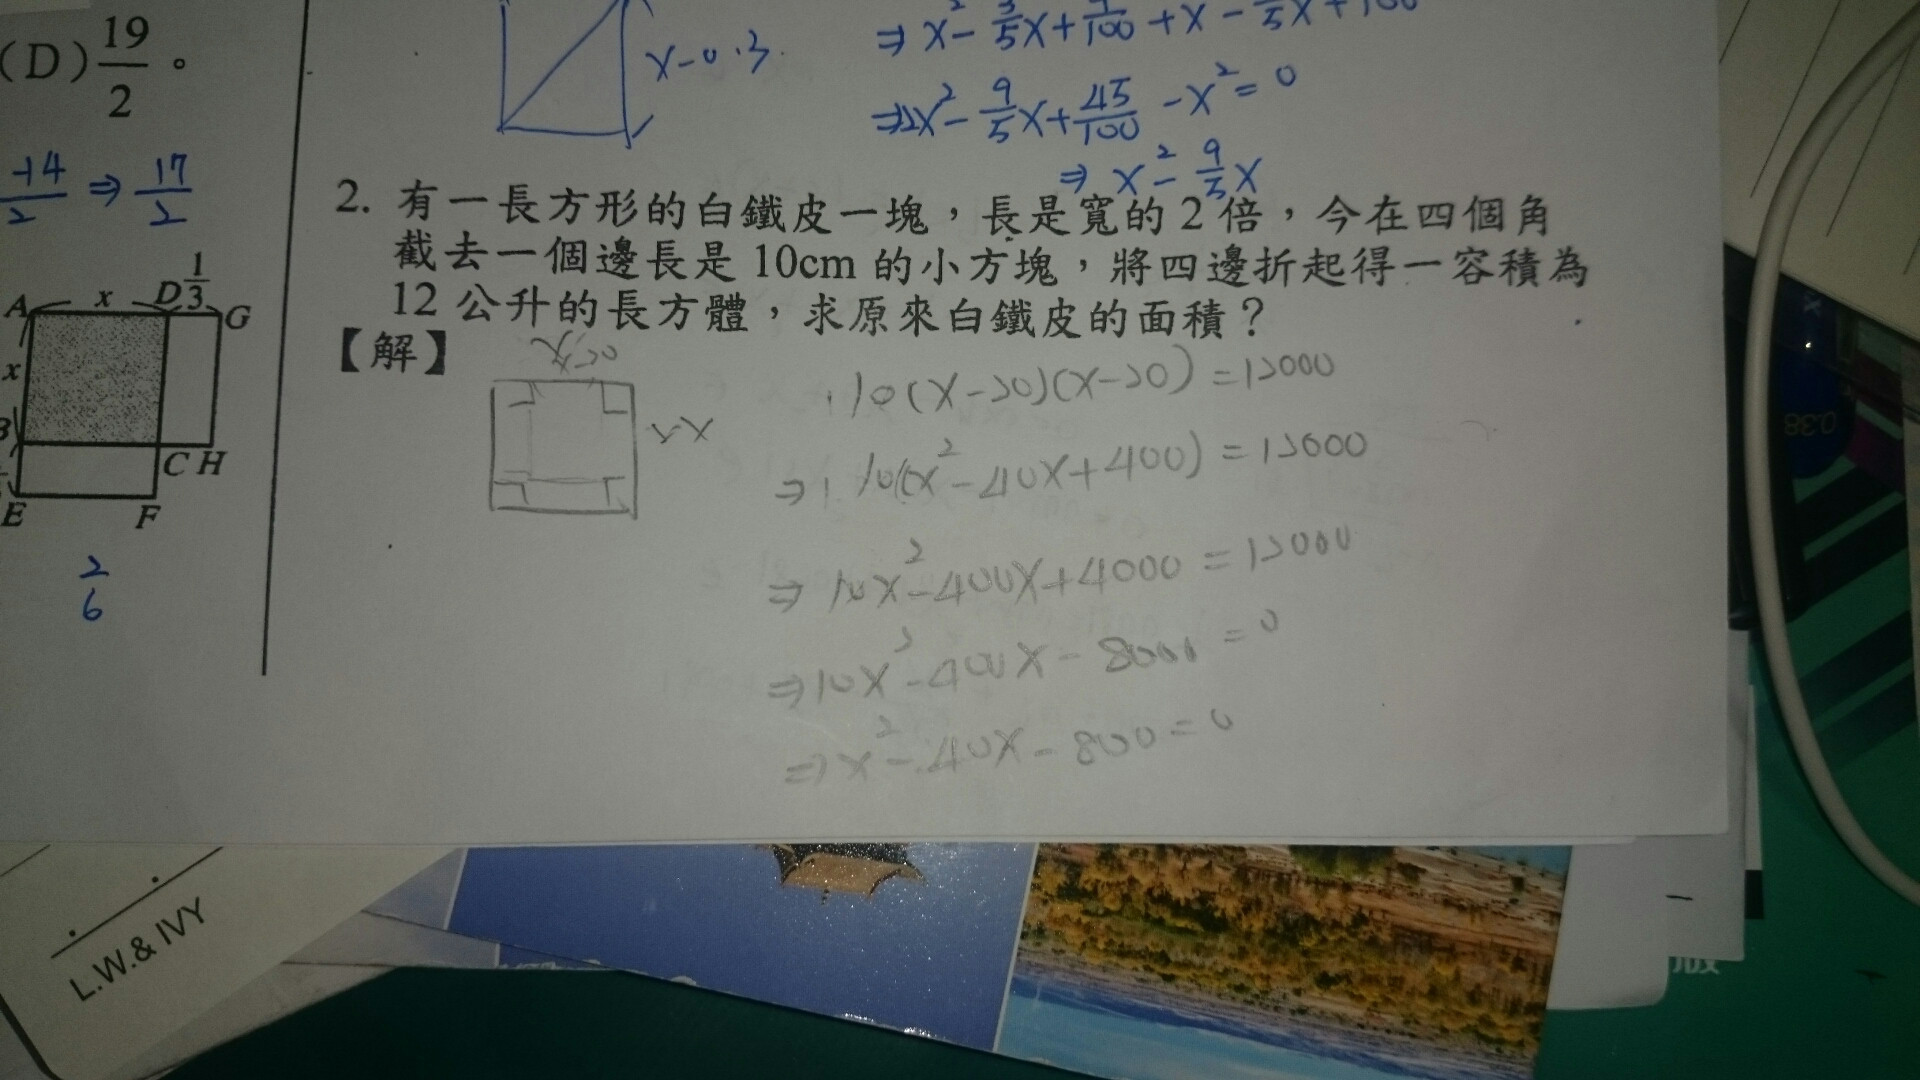 (D) 19/2 。
-14/2 ⇒ 17/2
A x D 1/3 G
x
B
C H
E F
2/6
x-0.3
⇒2x² - 9/5x + 45/100 - x² = 0
2. 有一長方形的白鐵皮一塊，長是寬的 2 倍，今在四個角
截去一個邊長是 10cm 的小方塊，將四邊折起得一容積為
12 公升的長方體，求原來白鐵皮的面積？
【解】
10(x-20)(x-20) = 12000
⇒ 10(x² - 40x + 400) = 12000
⇒ 10x² - 400x + 4000 = 12000
⇒ 10x² - 400x - 8000 = 0
⇒ x² - 40x - 800 = 0
L.W.& IVY
0.38
版